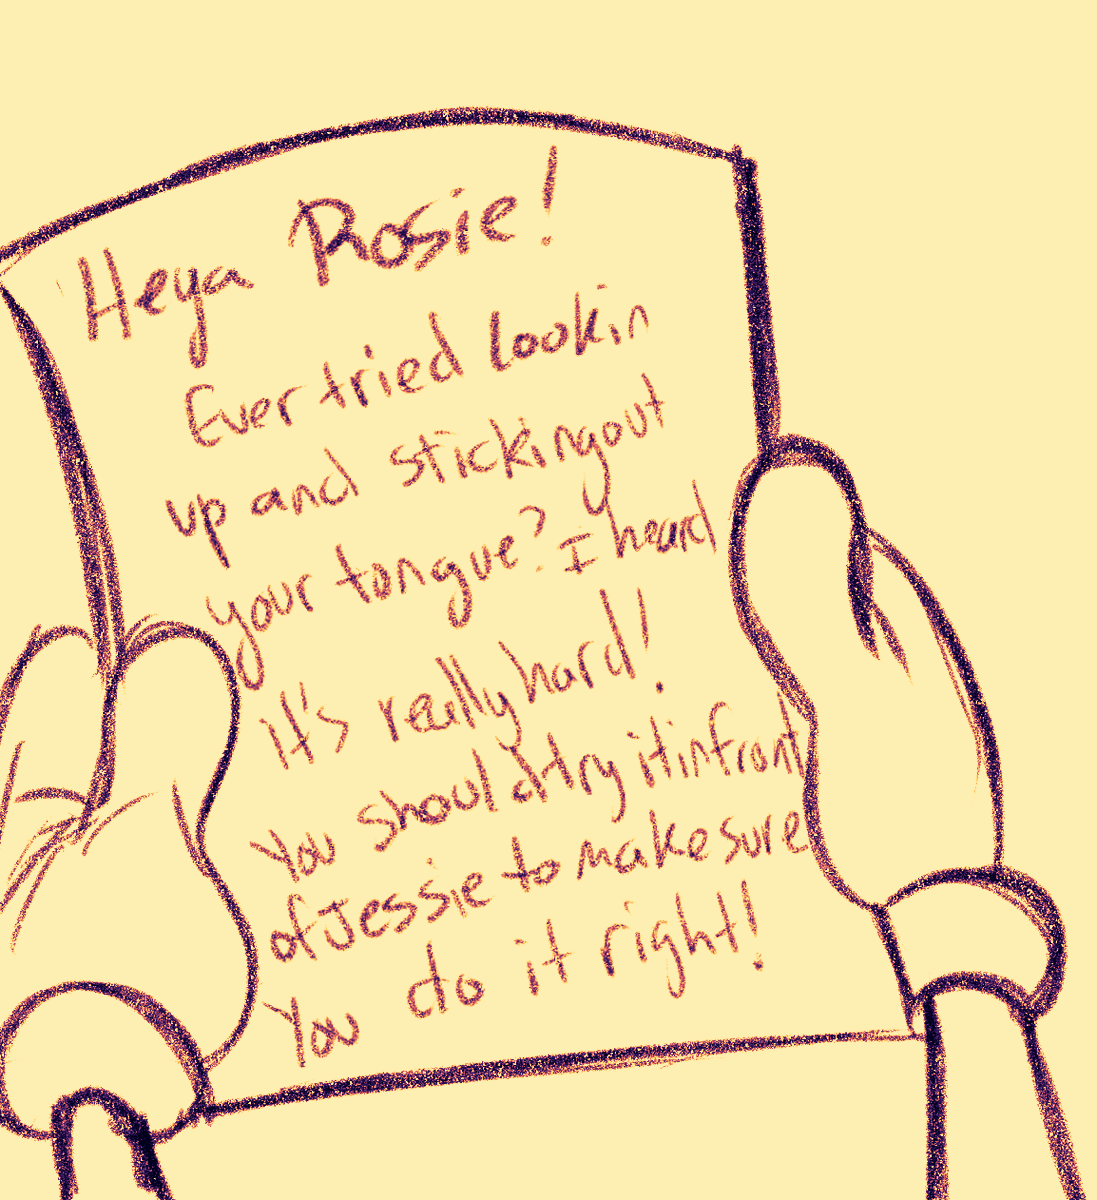 Heya Rosie!
Ever tried lookin
up and sticking out
your tongue? I heard
It's really hard!
You should try it in front
of Jessie to make sure
You do it right!